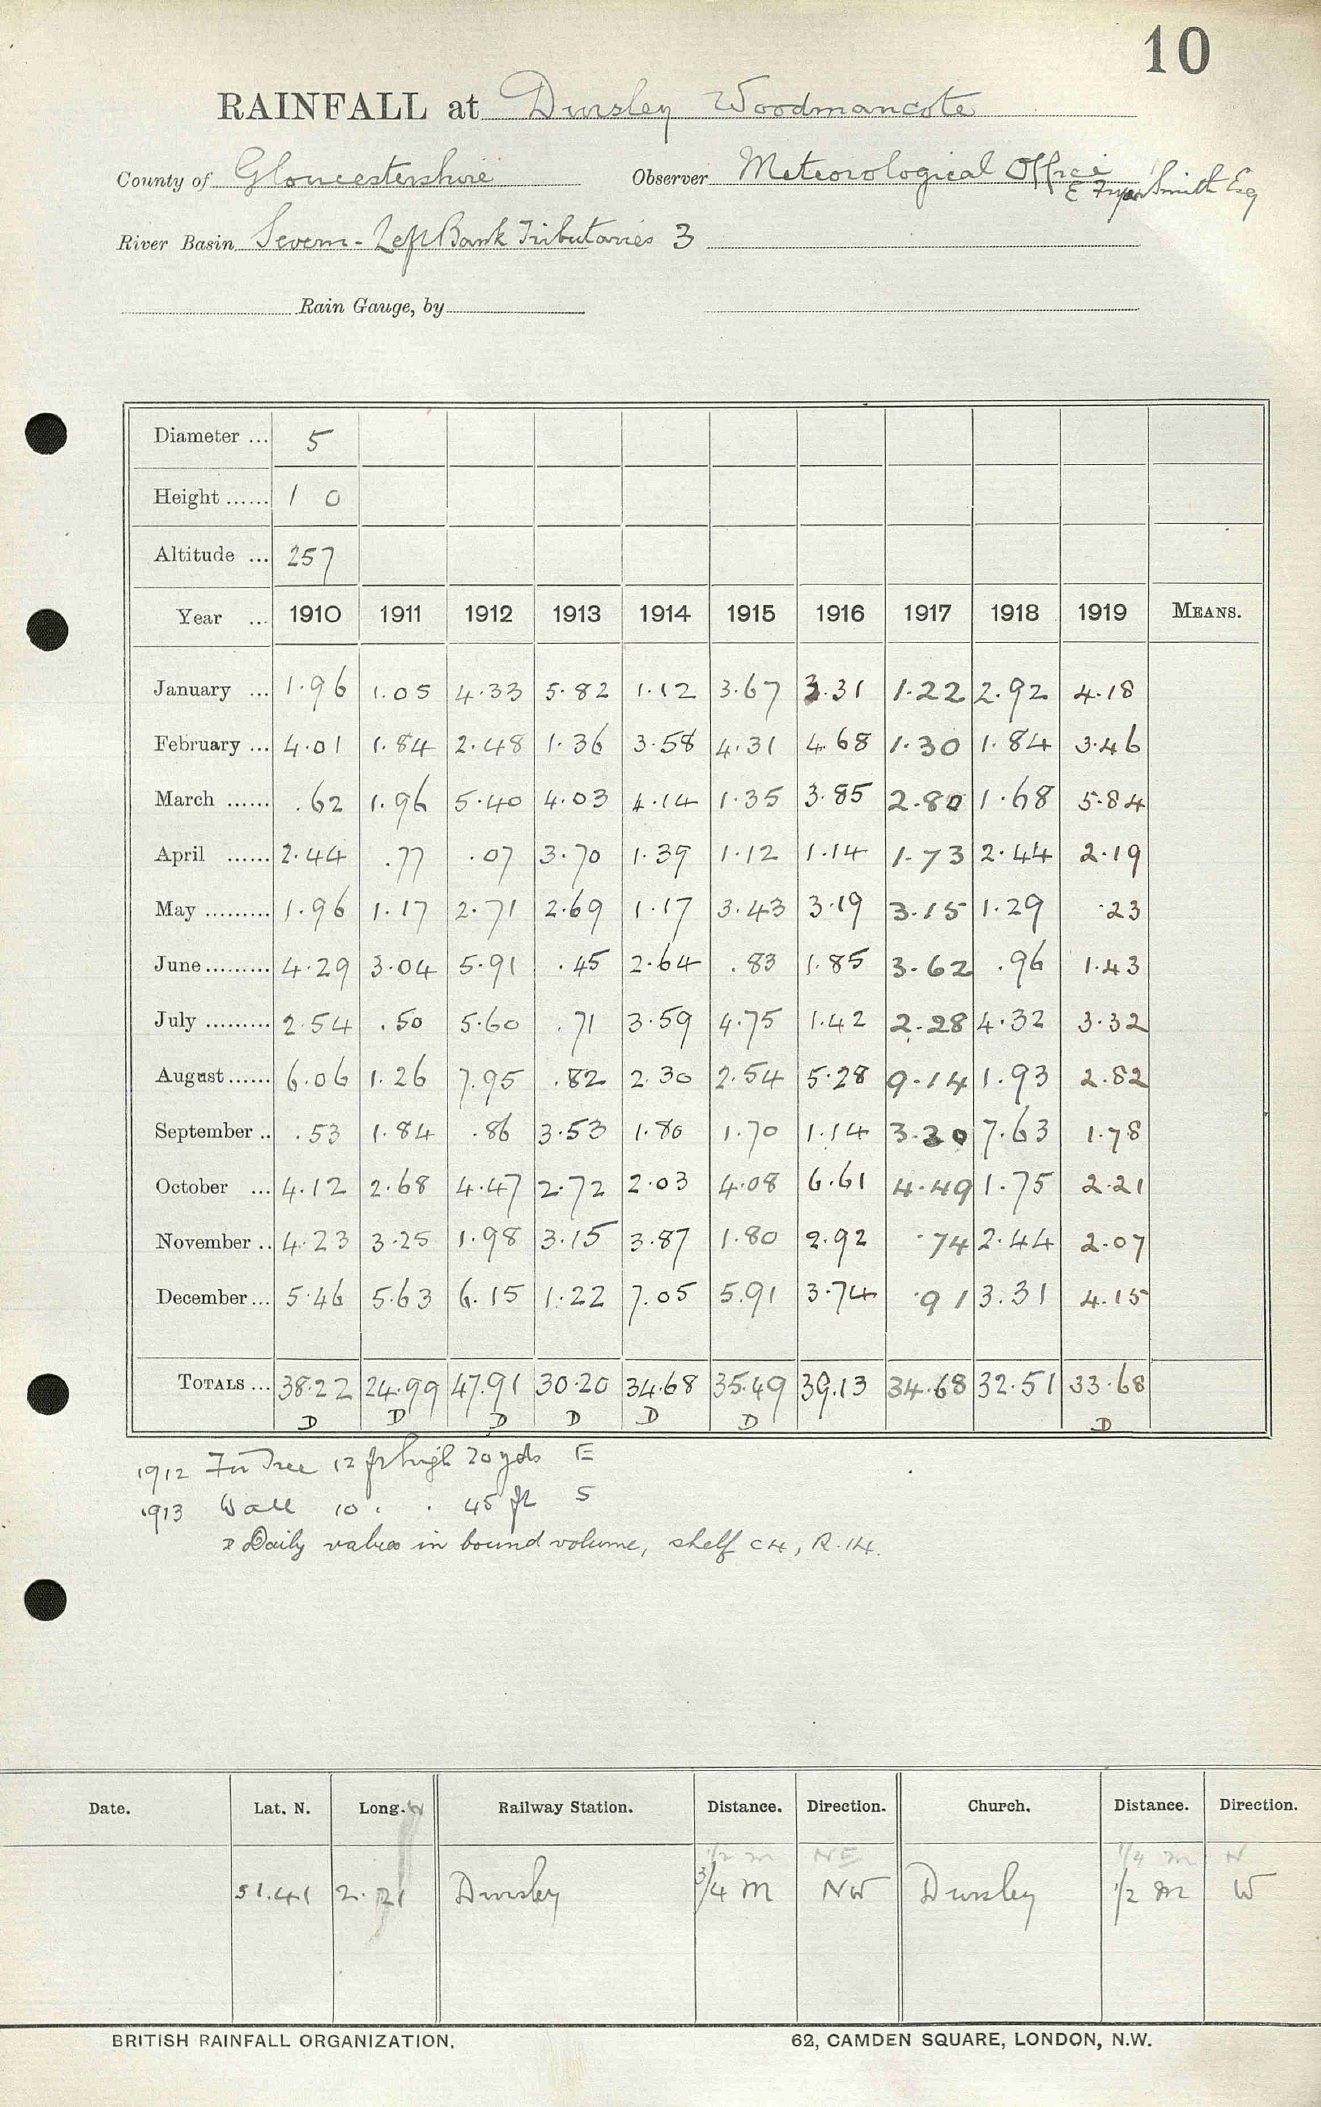 10
RAINFALL at Dursley Woodmancote
County of Gloucestershire Observer Meteorological Office
E Fryer Smith Esq
River Basin Severn - Left Bank Tributaries 3
Rain Gauge, by
Diameter ... 5
Height ...... 1 0
Altitude ... 257
Year ... 1910 1911 1912 1913 1914 1915 1916 1917 1918 1919 MEANS.
January ... 1.96 1.05 4.33 5.82 1.12 3.67 3.31 1.22 2.92 4.18
February ... 4.01 1.84 2.48 1.36 3.58 4.31 4.68 1.30 1.84 3.46
March ...... .62 1.96 5.40 4.03 4.14 1.35 3.85 2.80 1.68 5.84
April ...... 2.44 .77 .07 3.70 1.39 1.12 1.14 1.73 2.44 2.19
May ......... 1.96 1.17 2.71 2.69 1.17 3.43 3.19 3.15 1.29 .23
June ......... 4.29 3.04 5.91 .45 2.64 .83 1.85 3.62 .96 1.43
July ......... 2.54 .50 5.60 .71 3.59 4.75 1.42 2.28 4.32 3.32
August ...... 6.06 1.26 7.95 .82 2.30 2.54 5.28 9.14 1.93 2.82
September .. .53 1.84 .86 3.53 1.80 1.70 1.14 3.30 7.63 1.78
October ... 4.12 2.68 4.47 2.72 2.03 4.08 6.61 4.49 1.75 2.21
November .. 4.23 3.25 1.98 3.15 3.87 1.80 2.92 .74 2.44 2.07
December ... 5.46 5.63 6.15 1.22 7.05 5.91 3.74 .91 3.31 4.15
TOTALS ... 38.22 24.99 47.91 30.20 34.68 35.49 39.13 34.68 32.51 33.68
D D D D D D D
1912 Fir Tree 12 ft high 20 yds E
1913 Wall 10 " " 45 ft S
Daily values in bound volume, shelf C4, R.14.
Date. Lat. N. Long. W Railway Station. Distance. Direction. Church. Distance. Direction.
1/2 m NE 1/4 m N
51.41 2.21 Dursley 3/4 M NW Dursley 1/2 M W
BRITISH RAINFALL ORGANIZATION. 62, CAMDEN SQUARE, LONDON, N.W.